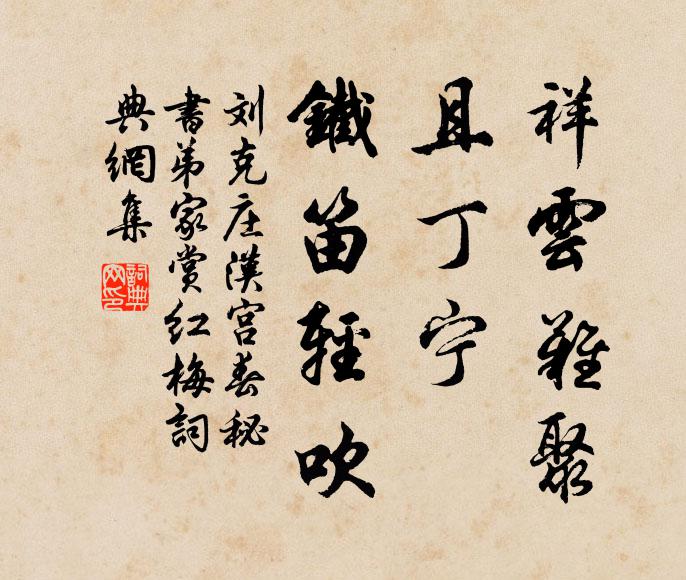 祥雲難聚
且丁宁
鐵笛輕吹
刘克庄漢宮春秘
書弟家赏红梅詞
典網集
詞典网印